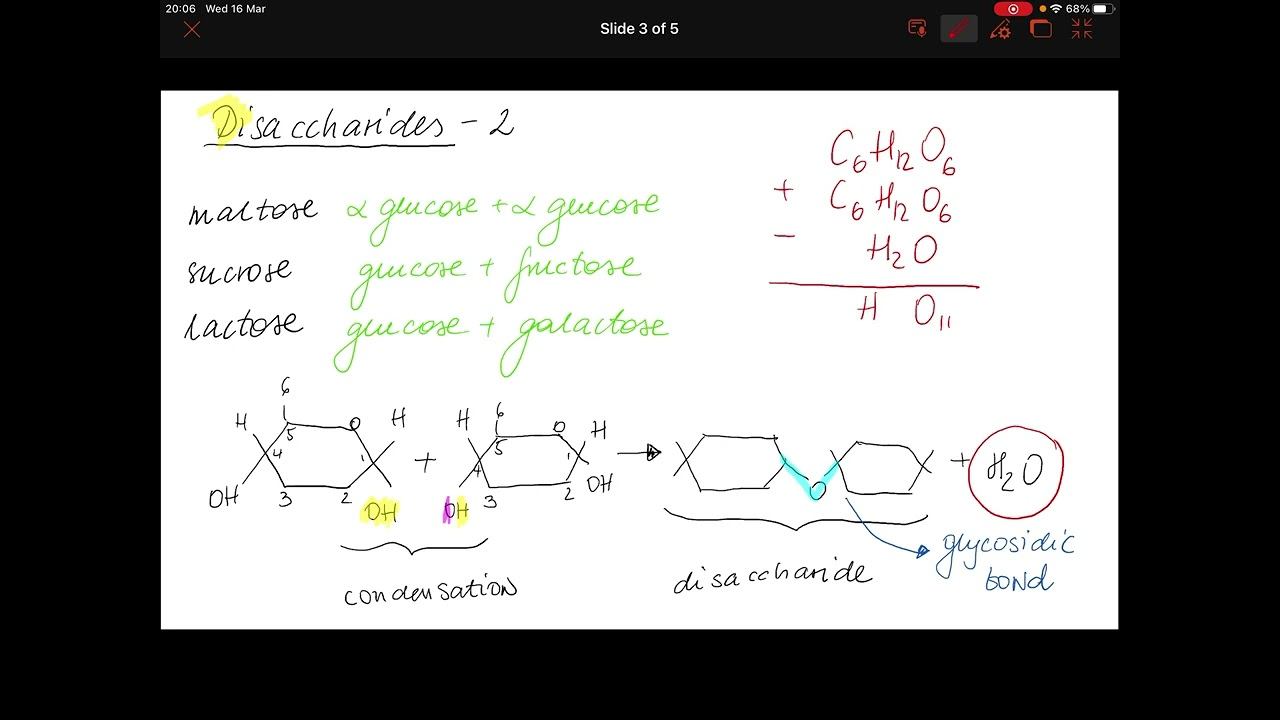 20:06 Wed 16 Mar
68%
Slide 3 of 5
Disaccharides - 2
maltose α glucose + α glucose
sucrose glucose + fructose
lactose glucose + galactose
C6H12O6
+ C6H12O6
- H2O
H O11
6
H 5 O H
4 1
OH 3 2 OH
+
6
H 5 O H
4 1
OH 3 2 OH
O
+ H2O
condensation
disaccharide
glycosidic
bond